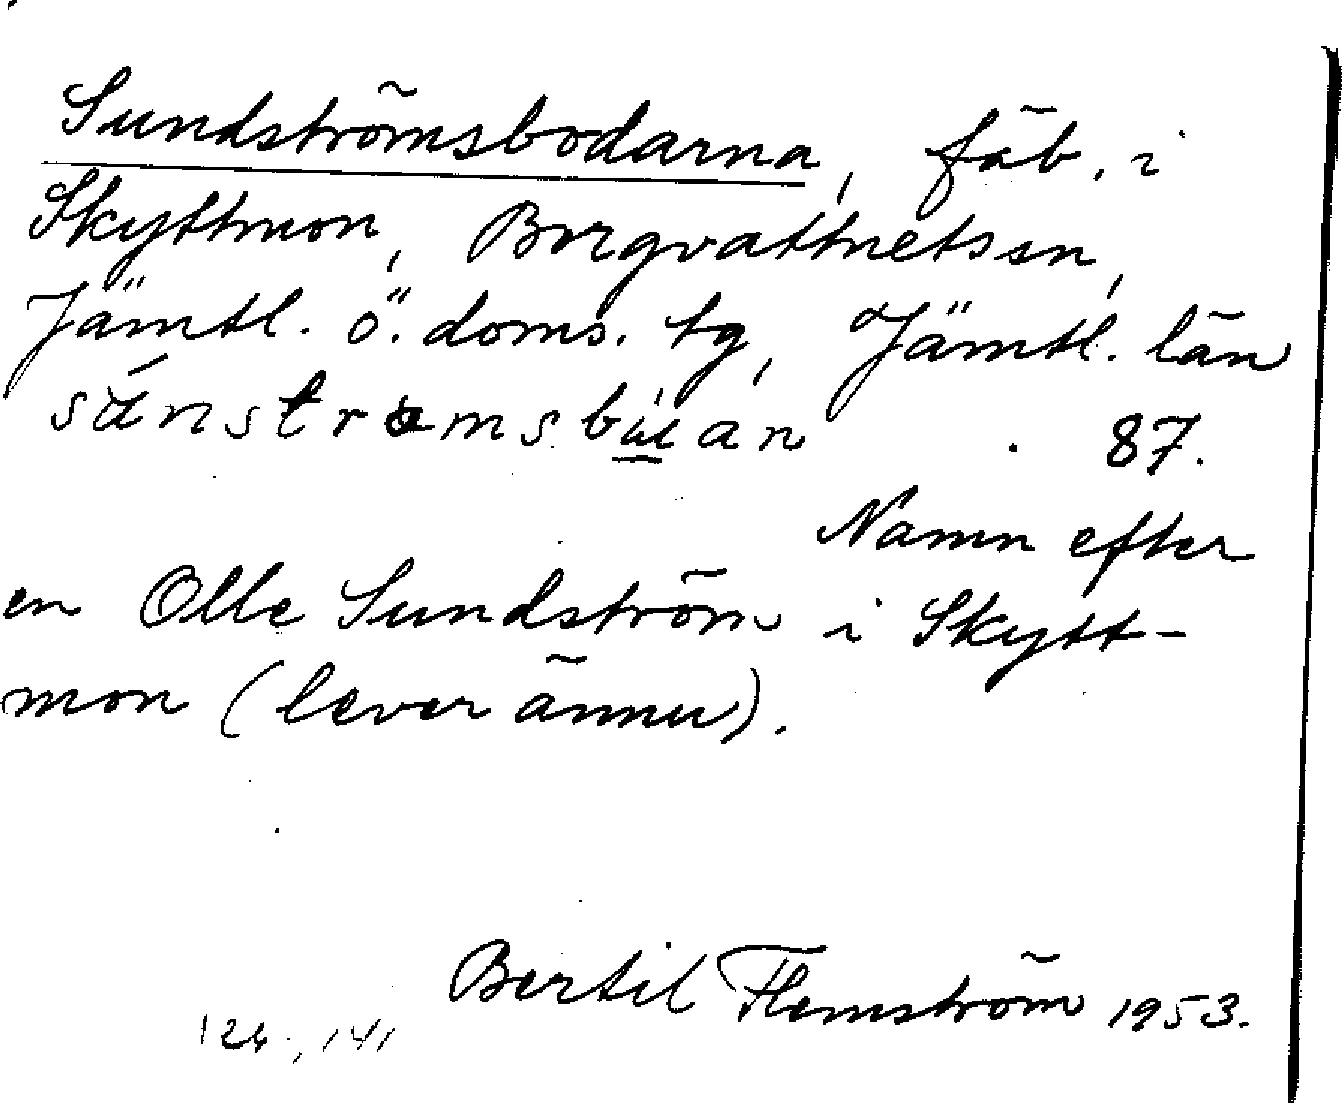 Sundströmsbodarna, fäb. i
Skyttmon, Borgvattnets sn,
Jämtl. ö. doms. tg, Jämtl. län
87.
Namn efter
en Olle Sundström i Skytt-
mon (lever ännu).
Bertil Flemström 1953.
141